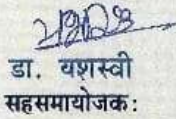 डा. यशस्वी
सहसमायोजक: